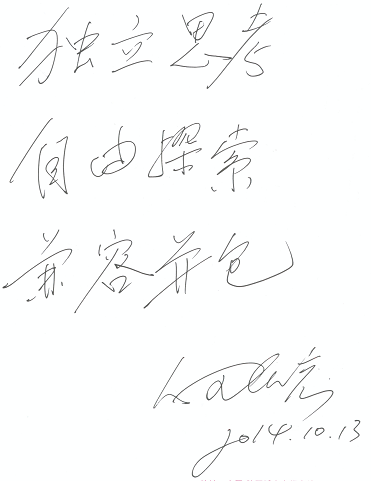 独立思考
自由探索
兼容并包
2014.10.13